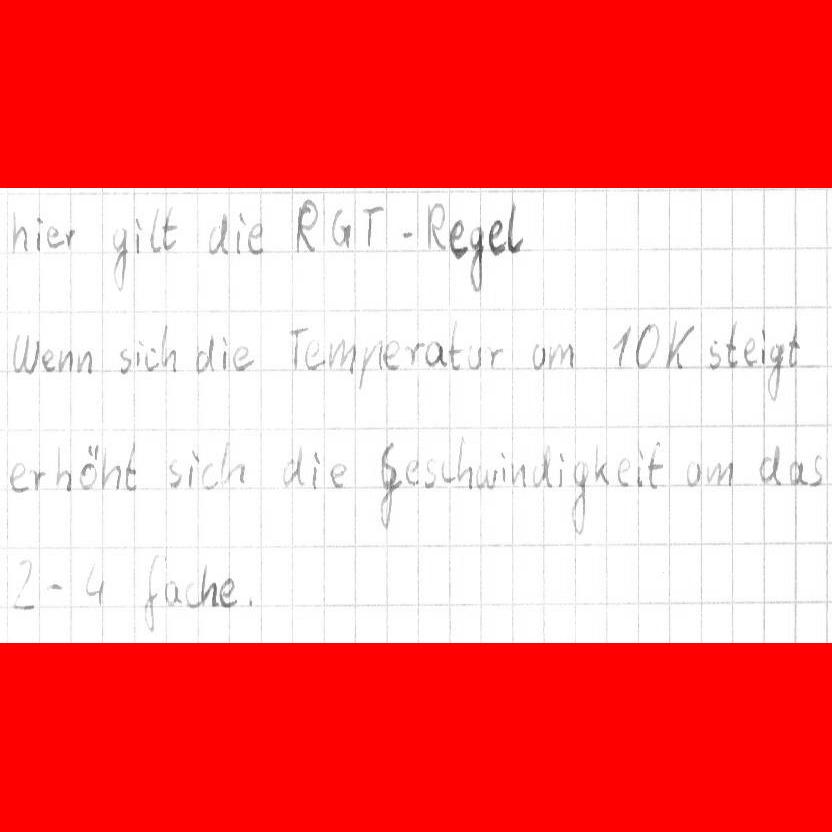 hier gilt die RGT-Regel
Wenn sich die Temperatur um 10K steigt
erhöht sich die Geschwindigkeit um das
2-4 fache.